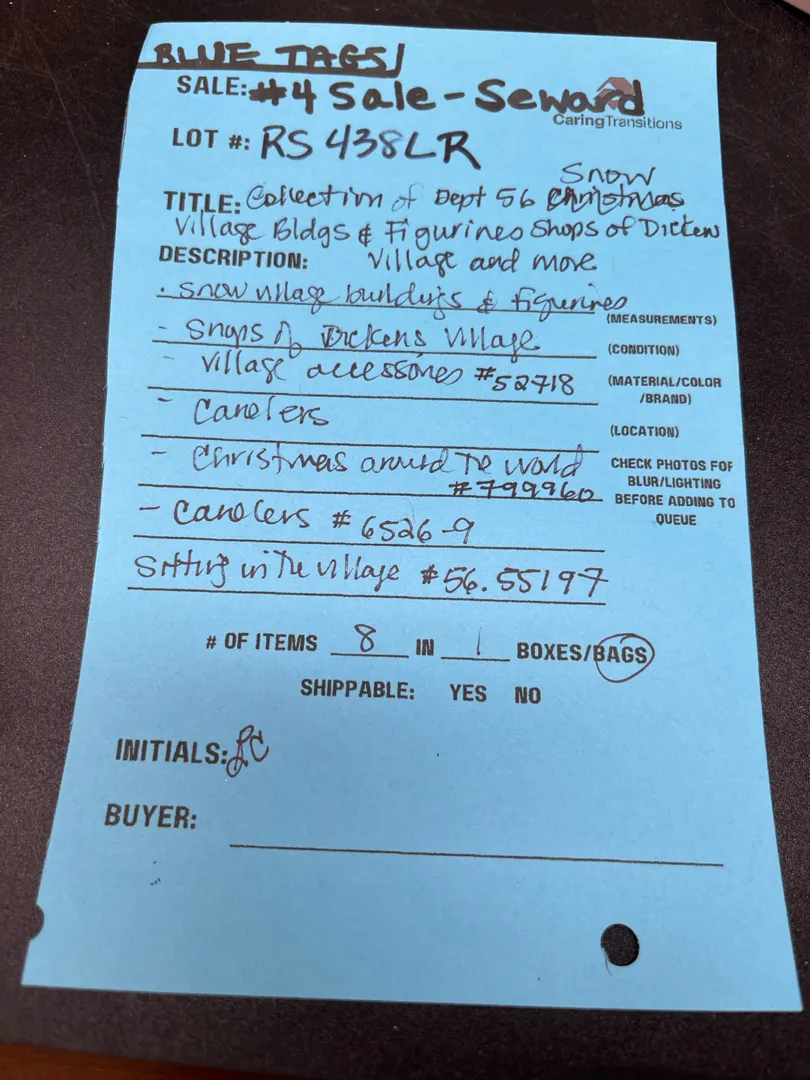 BLUE TAGS/
SALE: #4 Sale - Seward
CaringTransitions
LOT #: RS 438LR
Snow
TITLE: Collection of Dept 56 Christmas
Village Bldgs & Figurines Shops of Dicken
DESCRIPTION: Village and more
. Snow village buildings & figurines
(MEASUREMENTS)
- Shops of Dickens Village
(CONDITION)
- Village accessories #52718
(MATERIAL/COLOR
/BRAND)
- Carolers
(LOCATION)
- Christmas around the world
#799960
CHECK PHOTOS FOR
BLUR/LIGHTING
BEFORE ADDING TO
QUEUE
- Carolers # 6526-9
Sitting in the village #56.55197
# OF ITEMS 8 IN 1 BOXES/BAGS
SHIPPABLE: YES NO
INITIALS:
BUYER: